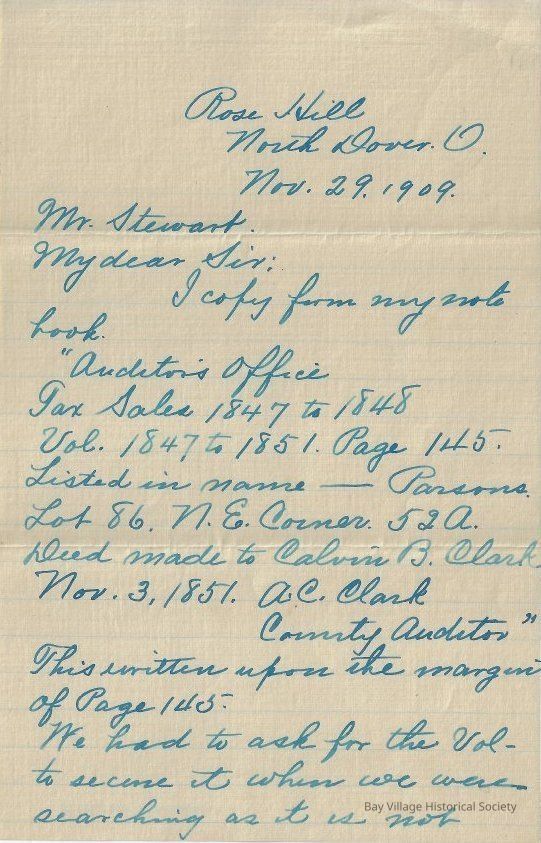 Rose Hill
North Dover. O.
Nov. 29. 1909.
Mr. Stewart.
My dear Sir:
I copy from my note
book.
"Auditor's Office
Tax Sales 1847 to 1848
Vol. 1847 to 1851. Page 145.
Listed in name — Parsons.
Lot 86. N.E. Corner. 52 A.
Deed made to Calvin B. Clark.
Nov. 3, 1851. A.C. Clark
County Auditor"
This written upon the margin
of Page 145.
We had to ask for the Vol-
to secure it when we were
searching as it is not
Bay Village Historical Society